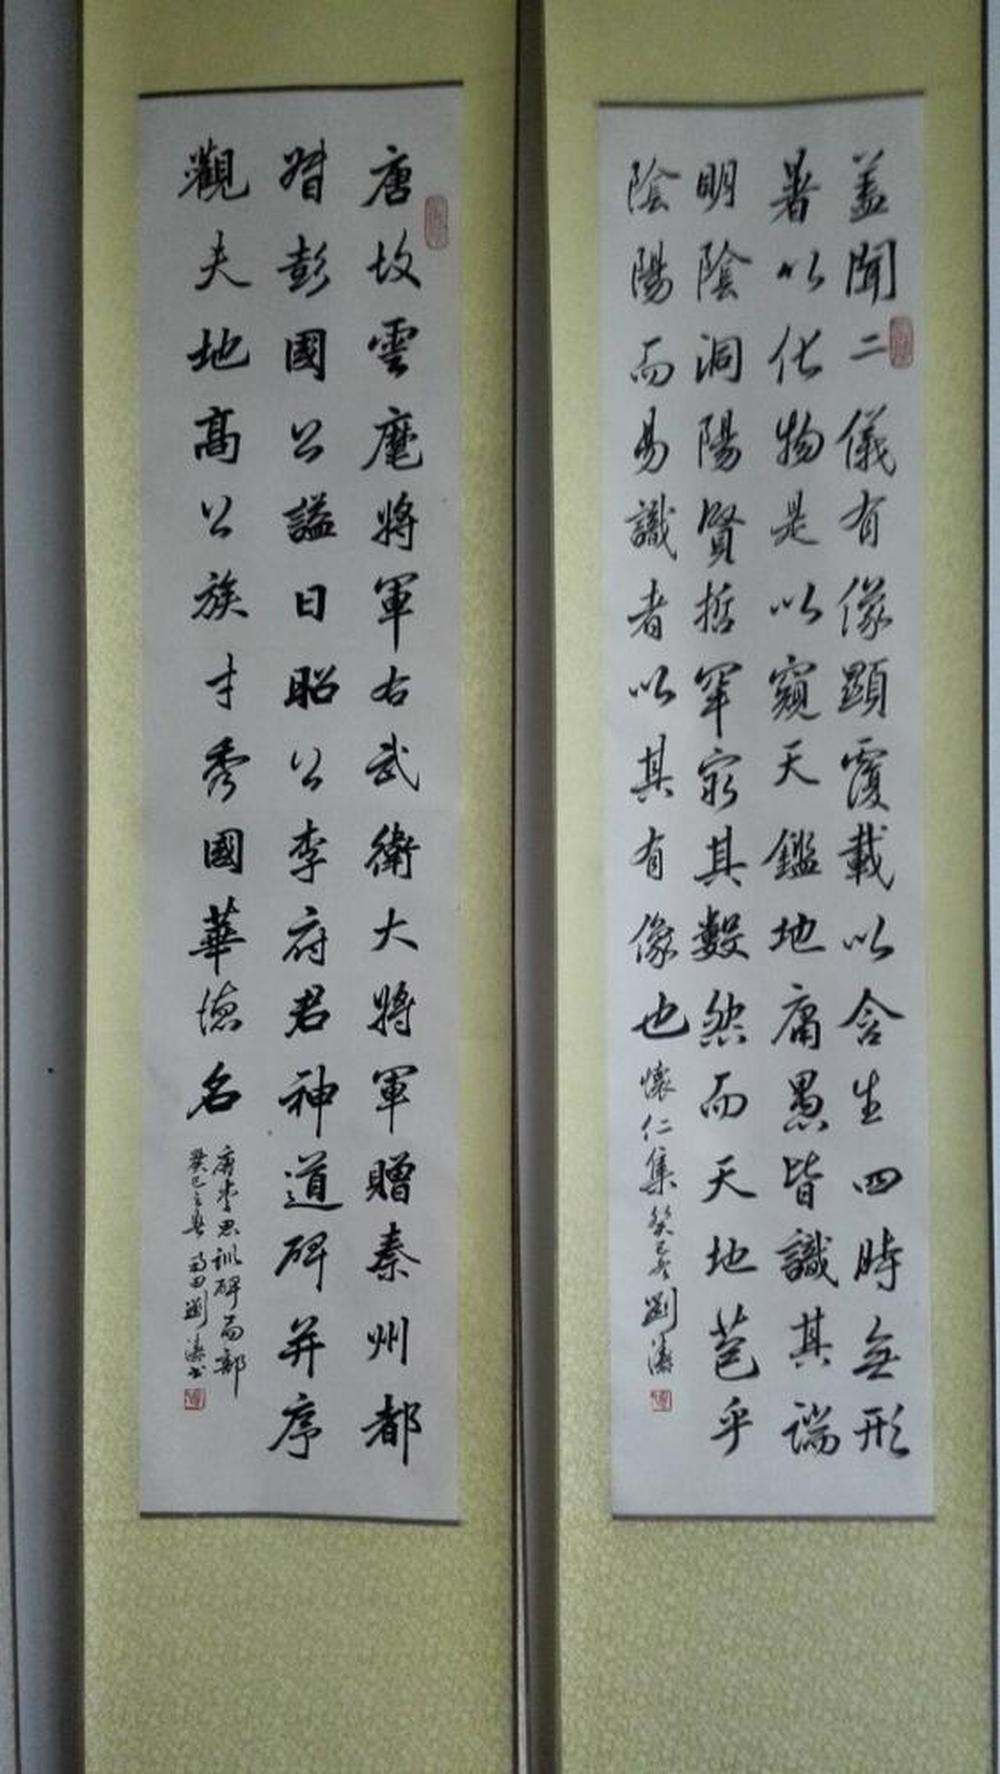 蓋聞二儀有像顯覆載以含生四時無形
暑以化物是以窺天鑑地庸愚皆識其端
明陰洞陽賢哲罕窮其數然而天地苞乎
陰陽而易識者以其有像也
懷仁集癸巳冬劉濤
唐故雲麾將軍右武衛大將軍贈秦州都
督彭國公謚曰昭公李府君神道碑并序
觀夫地高公族才秀國華德名
唐李思訓碑局部
癸巳之春 劉濤書